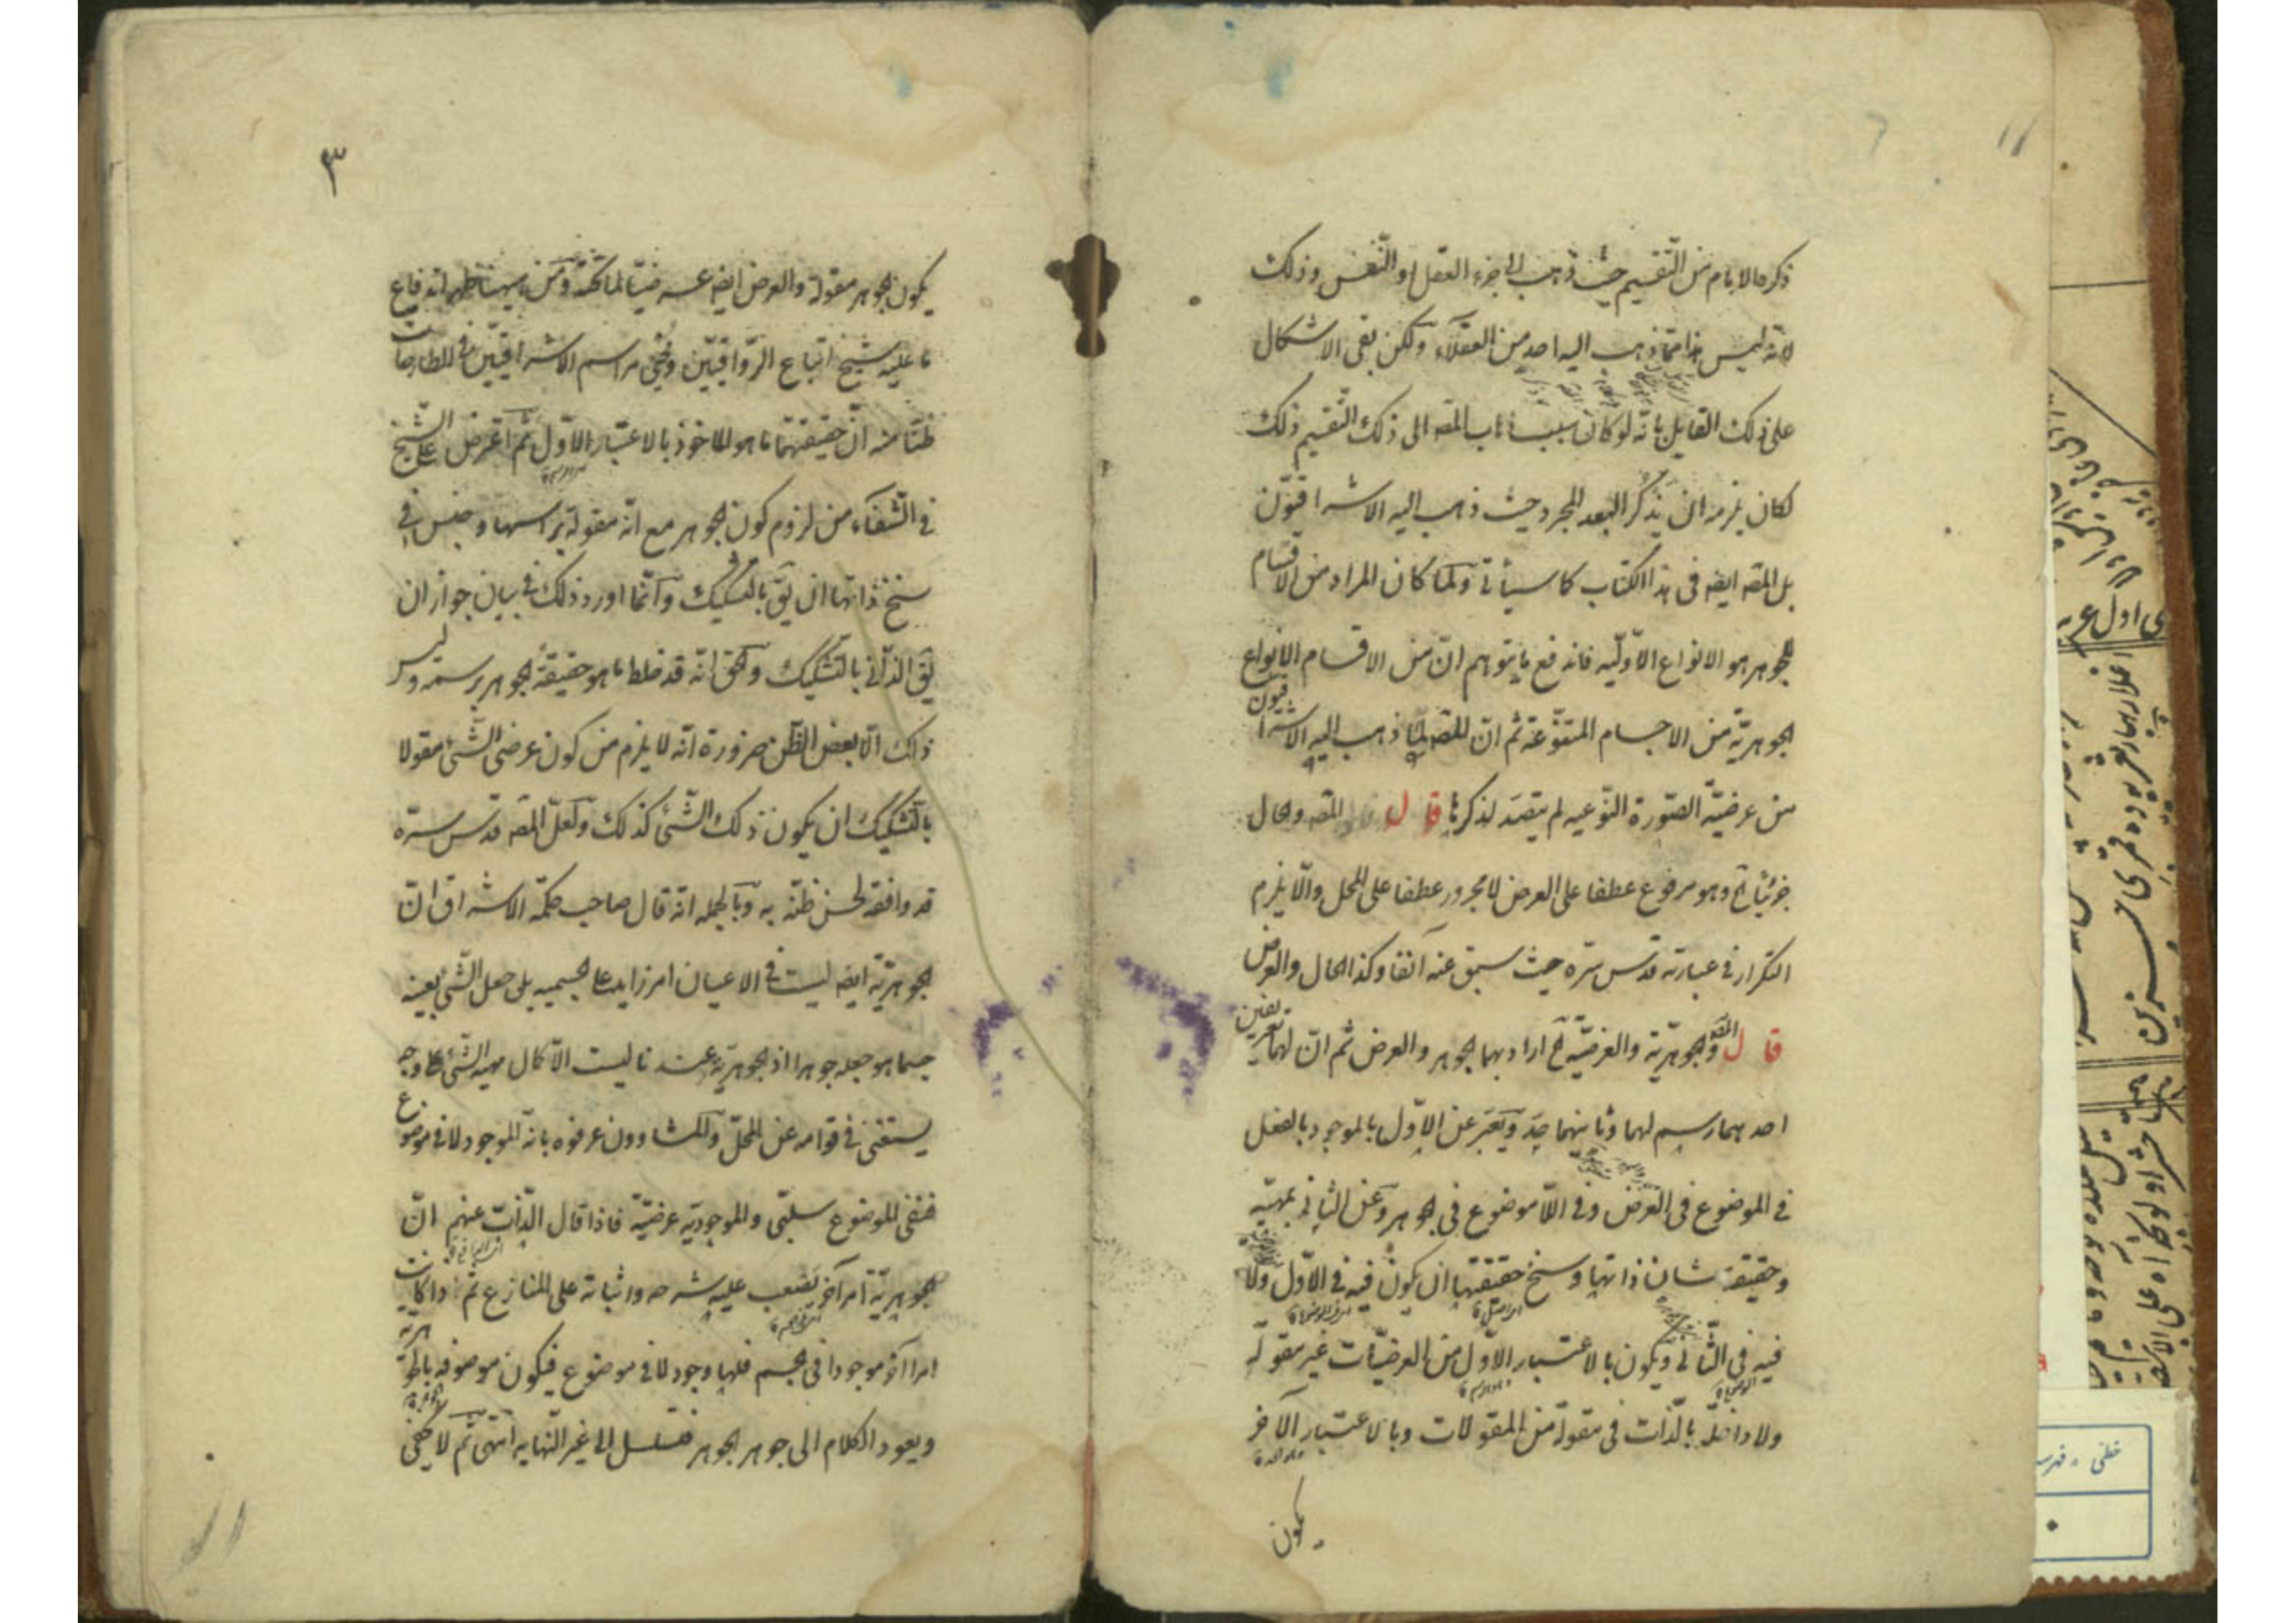 ذكره الامام من التقسيم حيث ذهب الى جزء العقل او النفس وذلك
لانه ليس هذا مما ذهب اليه احد من العقلاء ولكن بقى الاشكال
على ذلك القايل بانه لو كان سبب ذهاب المصه الى ذلك التقسيم ذلك
لكان يلزمه ان يذكر البعد المجرد حيث ذهب اليه الاشراقيون
بل المصه ايضه فى هذا الكتاب كما سيأتى ولما كان المراد من الاقسام
للجوهر هو الانواع الاوليه فاندفع ما يتوهم ان من الاقسام الانواع
الجوهرية من الاجسام المتنوعة ثم ان المصه لما ذهب اليه الاشراقيون
من عرضية الصورة النوعيه لم يتصد لذكرها قال المصه والحال
جزئيا الخ وهو مرفوع عطفا على العرض لا مجرور عطفا على المحل والا يلزم
التكرار فى عبارته قدس سره حيث سبق عنه آنفا وكذا الحال والعرض
قال المصه والجوهرية والعرضية الخ اراد بهما الجوهر والعرض ثم ان لهما تعريفين
احدهما رسم لهما وثانيهما حد ويعبر عن الاول بالموجود بالفعل
فى الموضوع فى العرض وفى اللاموضوع فى الجوهر وعن الثانى بمهية
وحقيقة شان ذاتها وسنخ حقيقتها ان يكون فيه فى الاول ولا
فيه فى الثانى ويكون بالاعتبار الاول من العرضيات غير مقولة
ولا داخلة بالذات فى مقولة من المقولات وبالاعتبار الآخر
يكون
٣
يكون الجوهر مقولة والعرض ايضه عرضيا لما تحته ومن هيهنا ظهر اندفاع
ما عليه شيخ اتباع الرواقيين ومحيى مراسم الاشراقيين فى المطارحات
ظنا منه ان حقيقتهما ما هو الماخوذ بالاعتبار الاول ثم اعترض على الشيخ
فى الشفاء من لزوم كون الجوهر مع انه مقولة براسها وجنس فى
سنخ ذاتها ان يق بالتشكيك وانما اورد ذلك فى بيان جواز ان
يق الذاتى بالتشكيك والحق انه قد خلط ما هو حقيقة الجوهر برسمه وليس
ذلك الا بعض الظن ضرورة انه لا يلزم من كون عرضى الشئ مقولا
بالتشكيك ان يكون ذلك الشئ كذلك ولعل المصه قدس سره
قد وافقه لحسن ظنه به وبالجمله انه قال صاحب حكمة الاشراق ان
الجوهرية ايضه ليست فى الاعيان امر زايد على الجسميه بل جعل الشئ بعينه
جسما هو جعله جوهرا اذ الجوهرية عندنا ليست الا كمال مهية الشئ على وجه
يستغنى فى قوامه عن المحل والمشاؤون عرفوه بانه الموجود لا فى موضوع
فنفى الموضوع سلبى والموجوديه عرضية فاذا قال الذاب عنهم ان
الجوهرية امر آخر يصعب عليه شرحه واثباته على المنازع ثم اذا كانت
امرا آخر موجودا فى الجسم فلها وجود لا فى موضوع فيكون موصوفه بالجوهرية
ويعود الكلام الى جوهر الجوهر فيتسلسل الى غير النهايه انتهى ثم لا يخفى